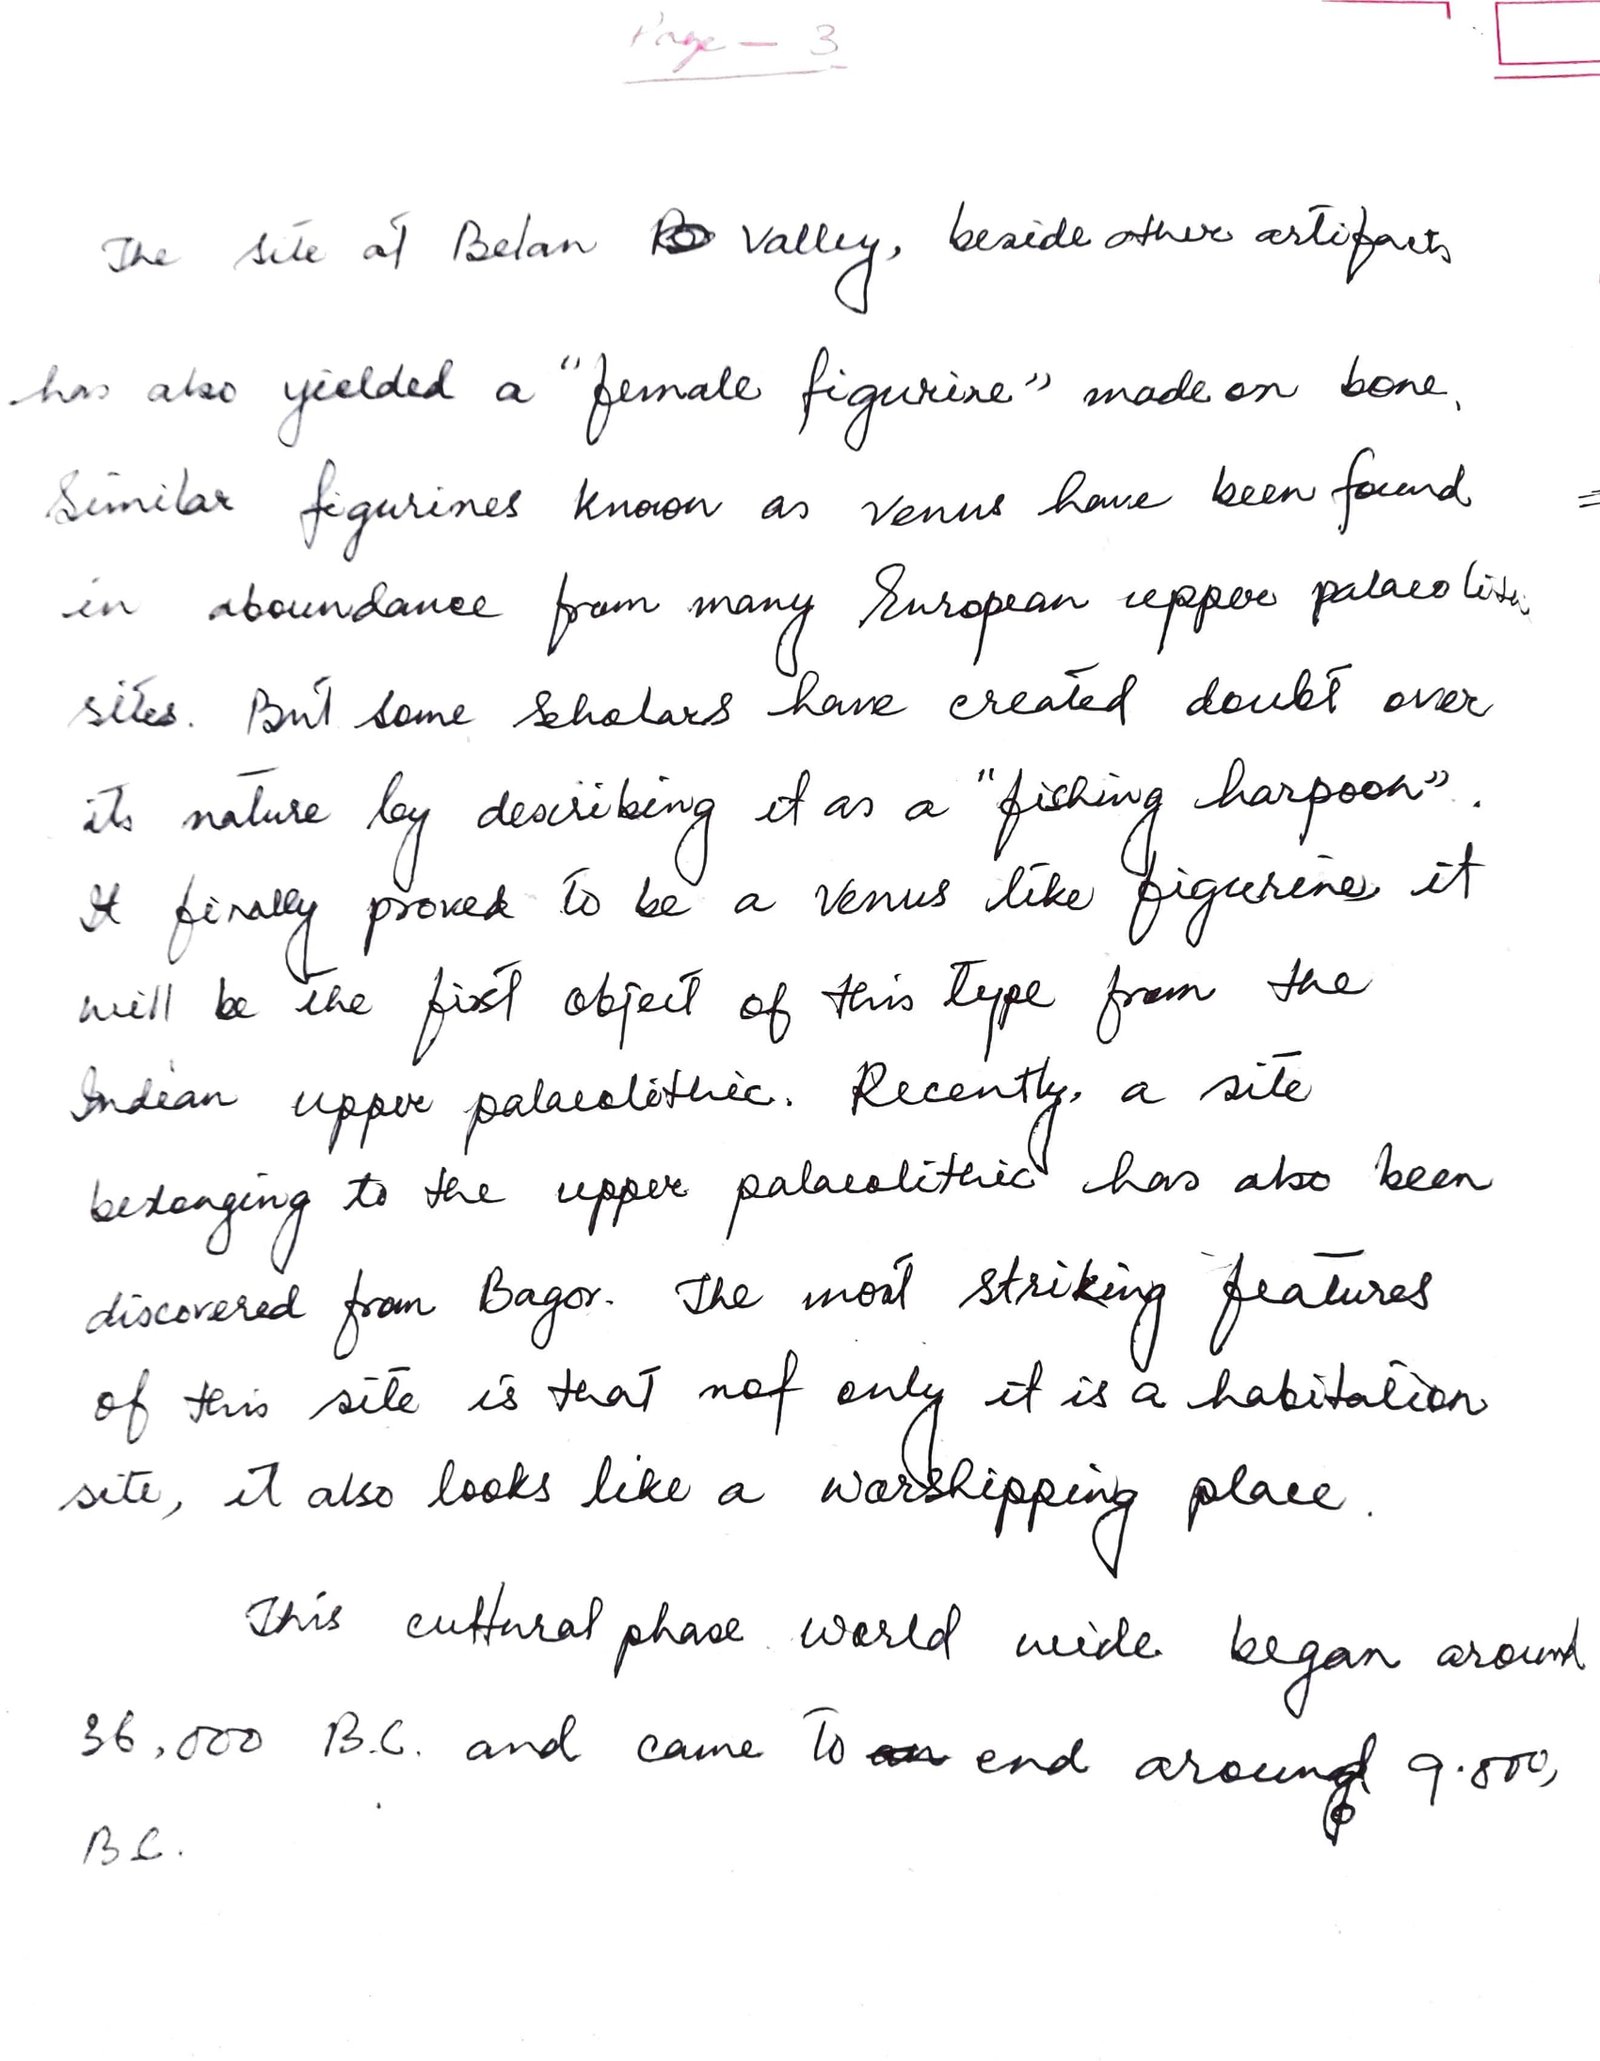 Page - 3
The site at Belan Valley, beside other artifacts
has also yielded a "female figurine" made on bone.
Similar figurines known as venus have been found
in aboundance from many European upper palaeolithic
sites. But some scholars have created doubt over
its nature by describing it as a "fishing harpoon".
It finally proved to be a venus like figurines it
will be the first object of this type from the
Indian upper palaeolithic. Recently, a site
belonging to the upper palaeolithic has also been
discovered from Bagor. The most striking features
of this site is that not only it is a habitation
site, it also looks like a worshipping place.
This cultural phase world wide began around
36,000 B.C. and came to end around 9.800,
B.C.